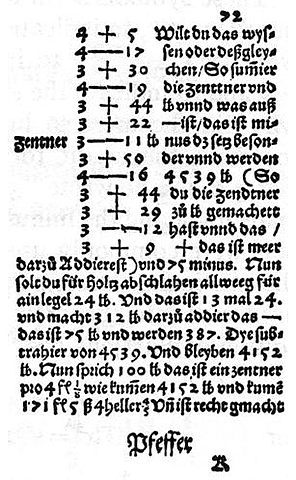 92
4 + 5 Wilt du das wys-
4 — 17 sen oder deßgley-
3 + 30 chen/So sum̃ier
4 — 19 die zenttner vnd
3 + 44 lb vnnd was auß
3 + 22 — ist/das ist mi-
zentner 3 — 11 lb nus dz setz beson-
3 + 50 der vnnd werden
4 — 16 4539 lb (So
3 + 44 du die zendtner
3 + 29 zů lb gemachett
3 — 12 hast vnnd das /
3 + 9 + das ist meer
darzů Addierest) vnd 75 minus. Nun
solt du für holtz abschlahen allweeg für
ain legel 24 lb. Vnd das ist 13 mal 24.
vnd macht 312 lb darzů addier das —
das ist 75 lb vnd werden 387. Dye sub-
trahier von 4539. Vnd bleyben 4152
lb. Nun sprich 100 lb das ist ein zentner
pro 4 fl ⅛ wie kum̃en 4152 lb vnd kumẽ
171 fl 5 ß 4 heller Vñ ist recht gmacht
Pfeffer